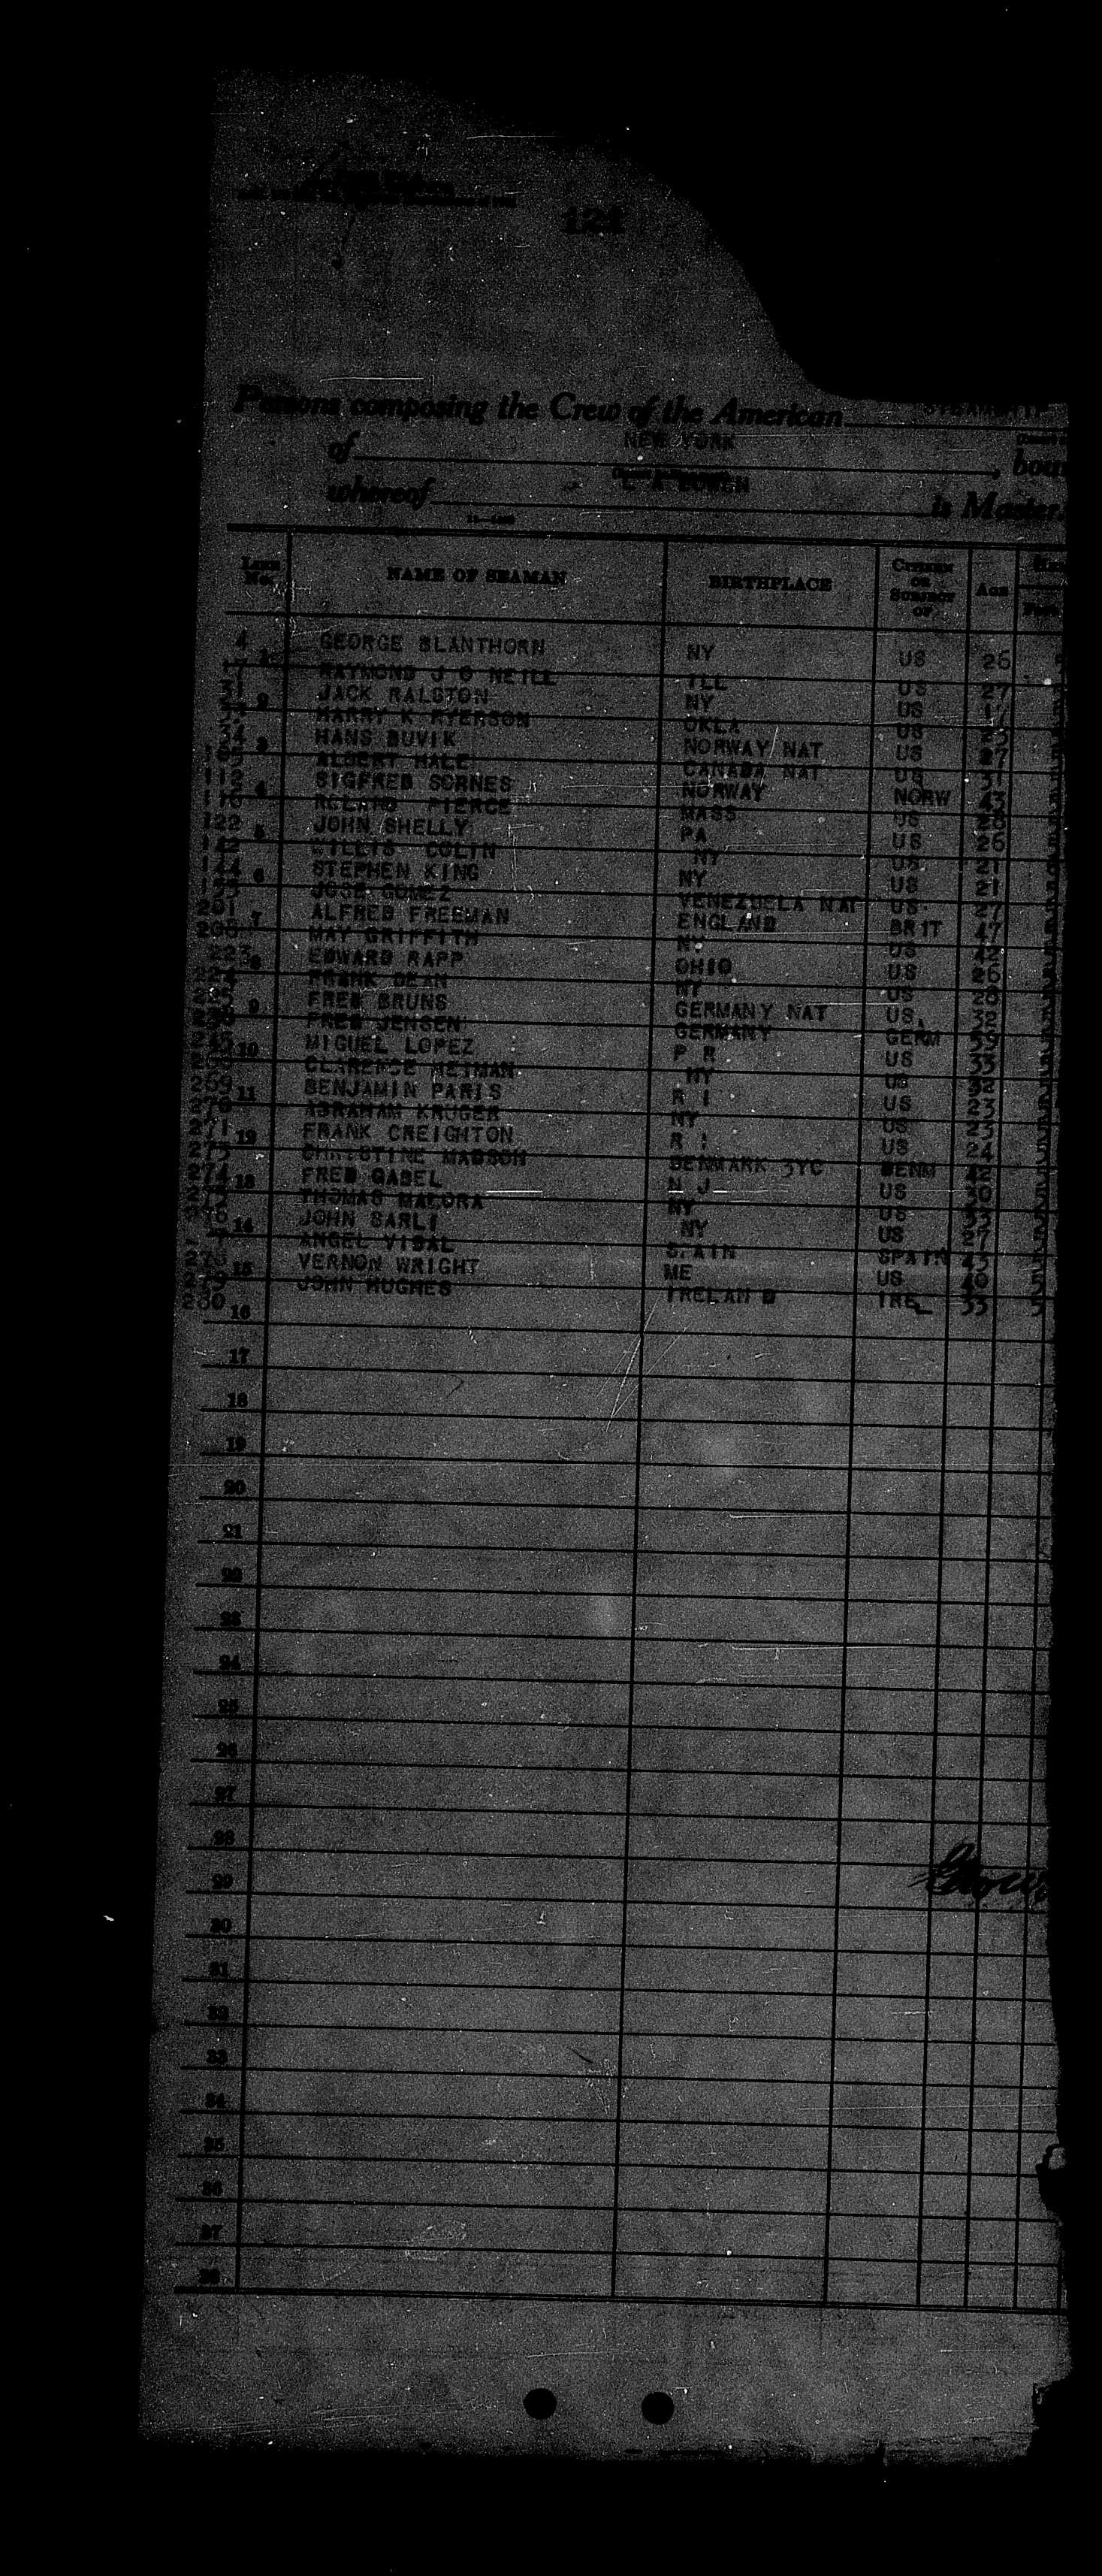 124
Persons composing the Crew of the American
of NEW YORK , bou
whereof BOWEN is Master.
LINE No. NAME OF SEAMAN BIRTHPLACE CITIZEN OR SUBJECT OF AGE
4 1 GEORGE BLANTHORN NY US 26
17 RAYMOND J O NEILL ILL US 27
31 2 JACK RALSTON NY US 17
HARRY K RYERSON OKLA US 23
34 3 HANS BUVIK NORWAY NAT US 27
105 ALBERT HALE CANADA NAT US 31
112 4 SIGFRED SORNES NORWAY NORW 43
116 PIERCE MASS US 28
122 5 JOHN SHELLY PA US 26
142 WILLIS COLIN NY US 21
144 6 STEPHEN KING NY US 21
JOSE GOMEZ VENEZUELA NAT US 27
201 7 ALFRED FREEMAN ENGLAND BRIT 47
208 MAY GRIFFITH US 42
223 8 EDWARD RAPP OHIO US 26
224 FRANK DEAN NY US 28
9 FRED BRUNS GERMANY NAT US 32
FRED JENSEN GERMANY GERM 39
10 MIGUEL LOPEZ P R US 33
CLARENCE HEIMAN NY US 32
269 11 BENJAMIN PARIS R I US 23
270 ABRAHAM KRUGER NY US 23
271 12 FRANK CREIGHTON R I US 24
273 CHRISTINE MADSON DENMARK 3YC DENM 42
274 13 FRED GABEL N J US 30
THOMAS MACORA NY US 33
276 14 JOHN SARLI NY US 27
ANGEL VIDAL SPAIN SPAIN 45
278 15 VERNON WRIGHT ME US 40
279 JOHN HUGHES IRELAND IRE 33
280 16
17
18
19
20
21
22
23
24
25
26
27
28
29
30
31
32
33
34
35
36
37
38